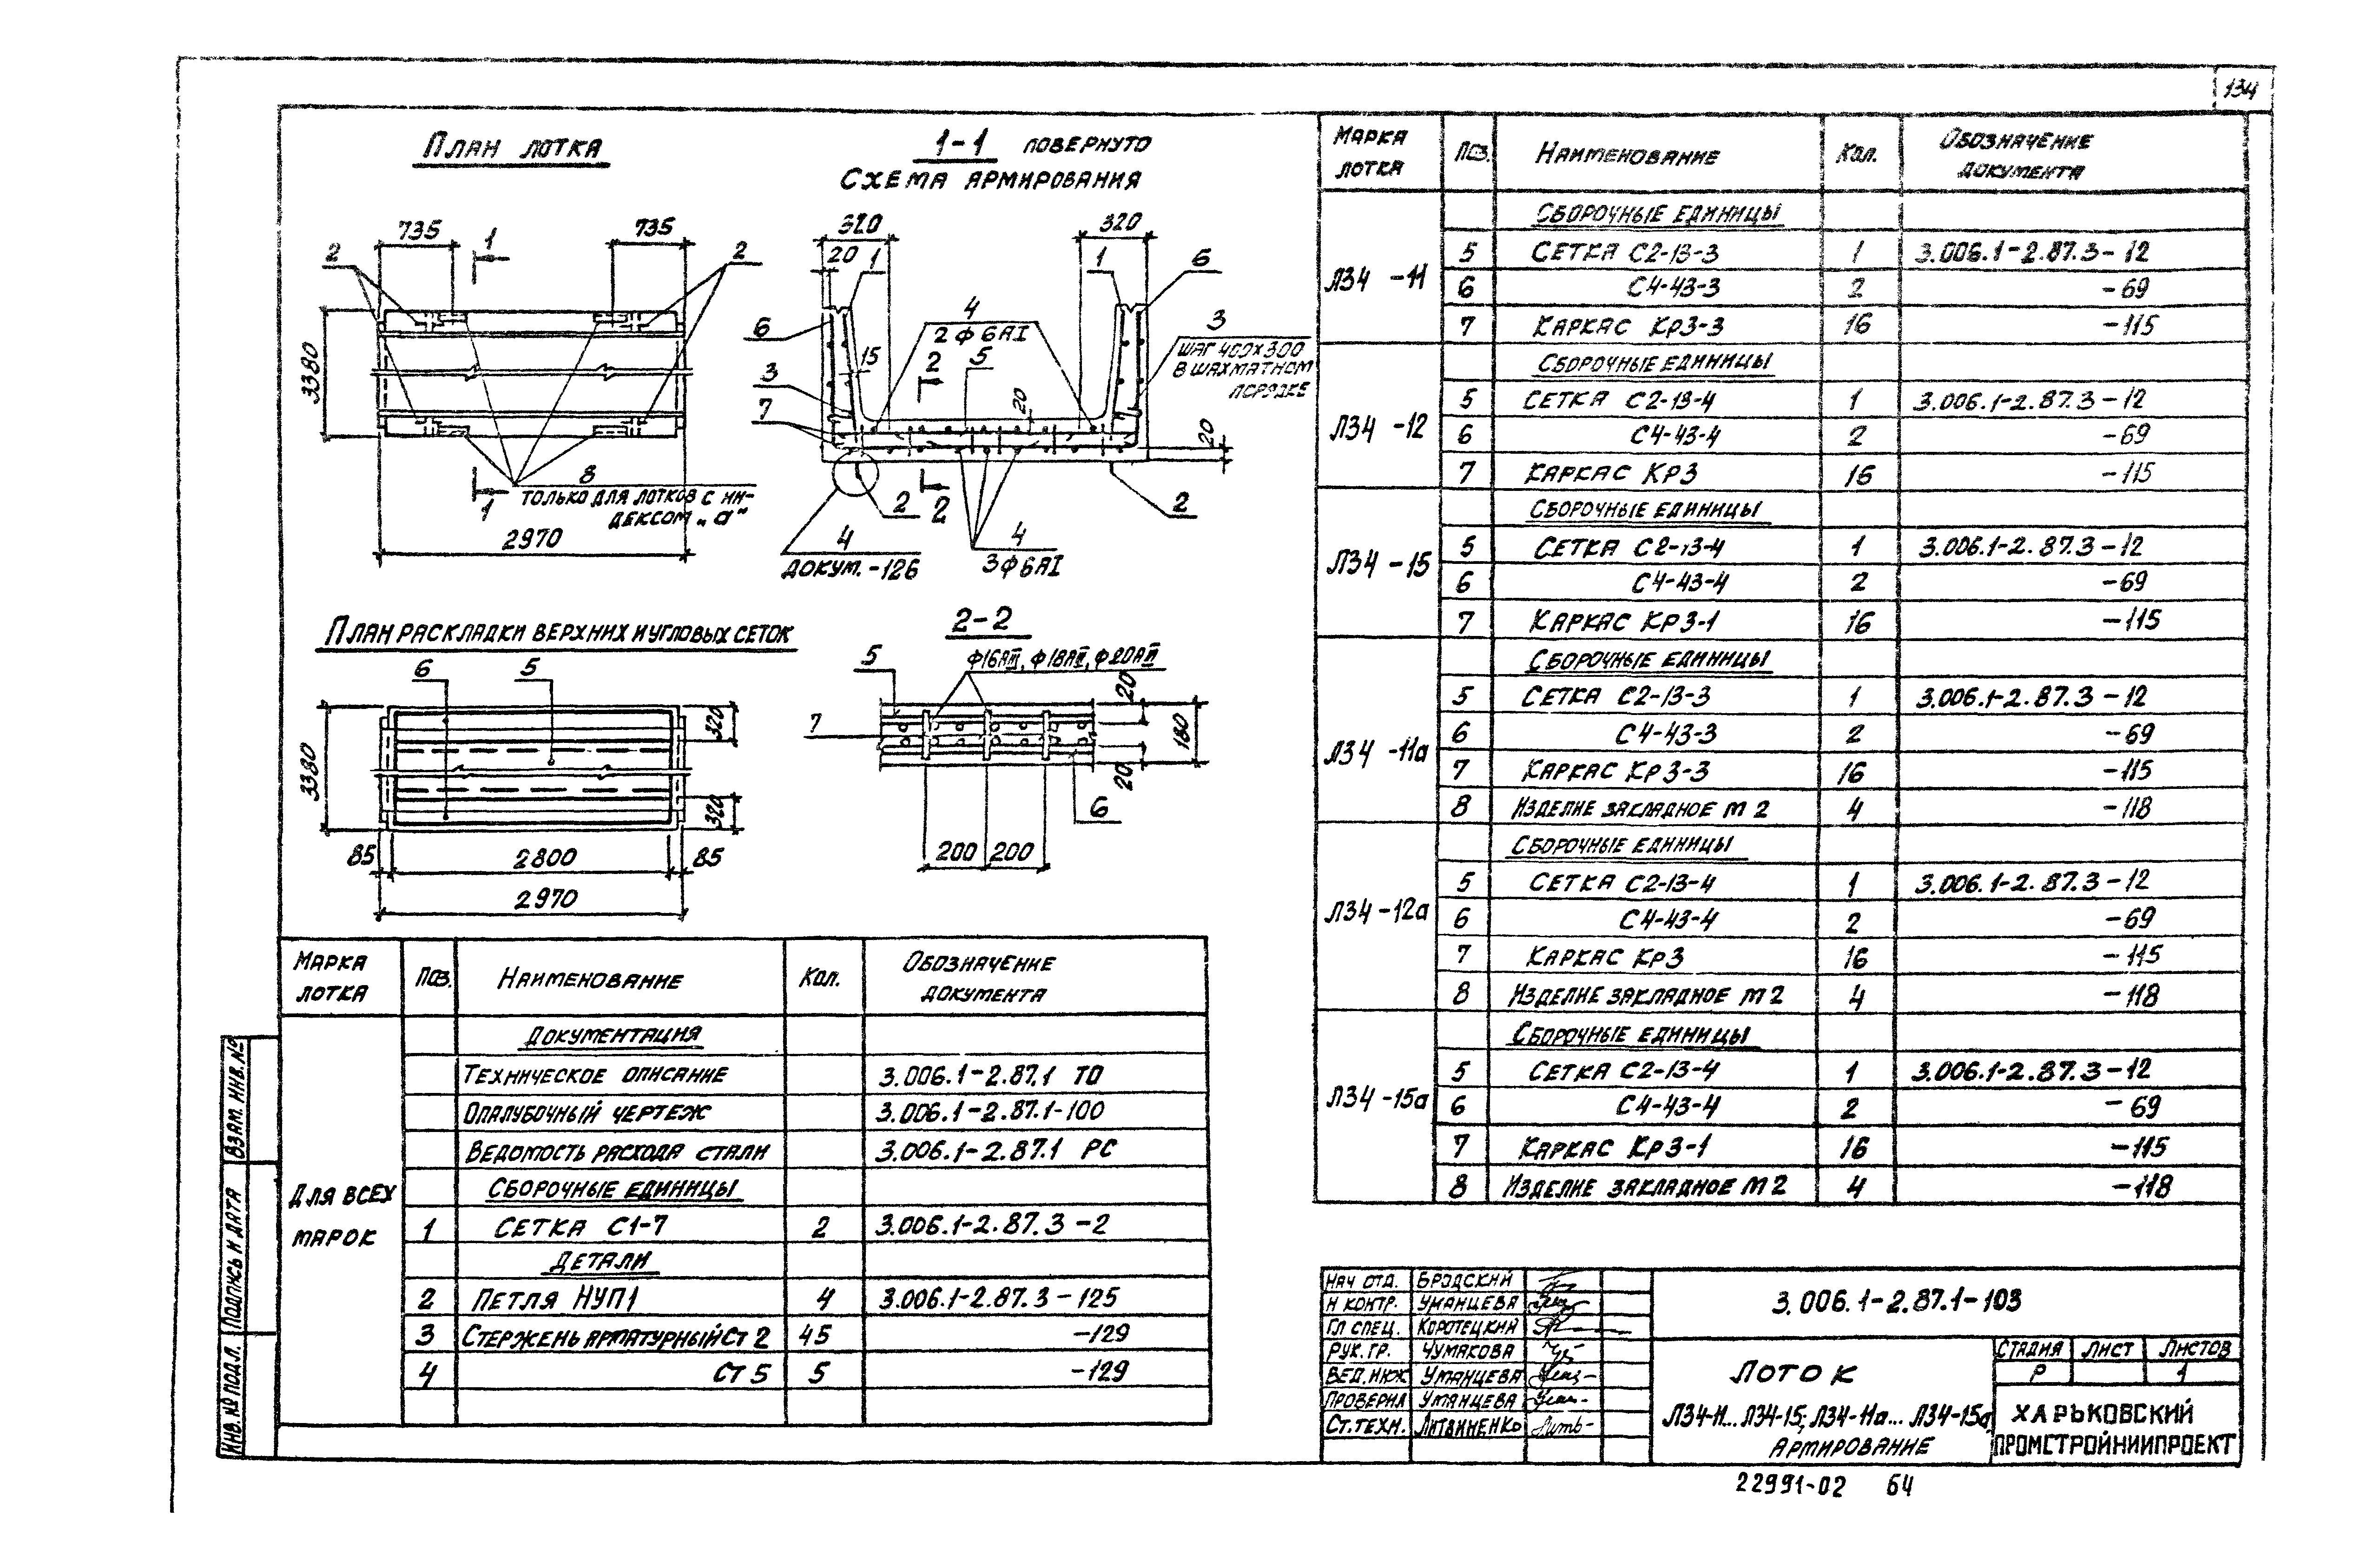 134
План лотка
735
735
1
2
2
3380
8
только для лотков с ин-
дексом „а"
1
2970
1-1 повернуто
Схема армирования
320
320
20
1
1
6
4
2ф6АI
6
3
шаг 400×300
в шахматном
порядке
15
2
5
3
7
20
20
2
2
2
4
докум. -126
4
3ф6АI
План раскладки верхних и угловых сеток
6
5
3380
320
320
85
2800
85
2970
2-2
5
ф16АIII, ф18АIII, ф20АIII
7
20
180
20
6
200
200
Марка лотка
Поз.
Наименование
Кол.
Обозначение документа
Для всех марок
Документация
Техническое описание 3.006.1-2.87.1 ТО
Опалубочный чертеж 3.006.1-2.87.1-100
Ведомость расхода стали 3.006.1-2.87.1 РС
Сборочные единицы
1 Сетка С1-7 2 3.006.1-2.87.3-2
Детали
2 Петля НУП1 4 3.006.1-2.87.3-125
3 Стержень арматурный Ст 2 45 -129
4 Ст 5 5 -129
Марка лотка
Поз.
Наименование
Кол.
Обозначение документа
Л34-11
Сборочные единицы
5 Сетка С2-13-3 1 3.006.1-2.87.3-12
6 С4-43-3 2 -69
7 Каркас Кр3-3 16 -115
Л34-12
Сборочные единицы
5 Сетка С2-13-4 1 3.006.1-2.87.3-12
6 С4-43-4 2 -69
7 Каркас Кр3 16 -115
Л34-15
Сборочные единицы
5 Сетка С2-13-4 1 3.006.1-2.87.3-12
6 С4-43-4 2 -69
7 Каркас Кр3-1 16 -115
Л34-11а
Сборочные единицы
5 Сетка С2-13-3 1 3.006.1-2.87.3-12
6 С4-43-3 2 -69
7 Каркас Кр3-3 16 -115
8 Изделие закладное м2 4 -118
Л34-12а
Сборочные единицы
5 Сетка С2-13-4 1 3.006.1-2.87.3-12
6 С4-43-4 2 -69
7 Каркас Кр3 16 -115
8 Изделие закладное м2 4 -118
Л34-15а
Сборочные единицы
5 Сетка С2-13-4 1 3.006.1-2.87.3-12
6 С4-43-4 2 -69
7 Каркас Кр3-1 16 -115
8 Изделие закладное м2 4 -118
Взам. инв. №
Подпись и дата
Инв. № подл.
Нач отд. Бродский
Н контр. Уманцева
Гл спец. Коротецкий
Рук. гр. Чумакова
Вед. инж Уманцева
Проверил Уманцева
Ст. техн. Литвиненко
3.006.1-2.87.1-103
Лоток
Л34-11... Л34-15; Л34-11а... Л34-15а
Армирование
Стадия Лист Листов
Р 1
Харьковский
Промстройниипроект
22991-02 64